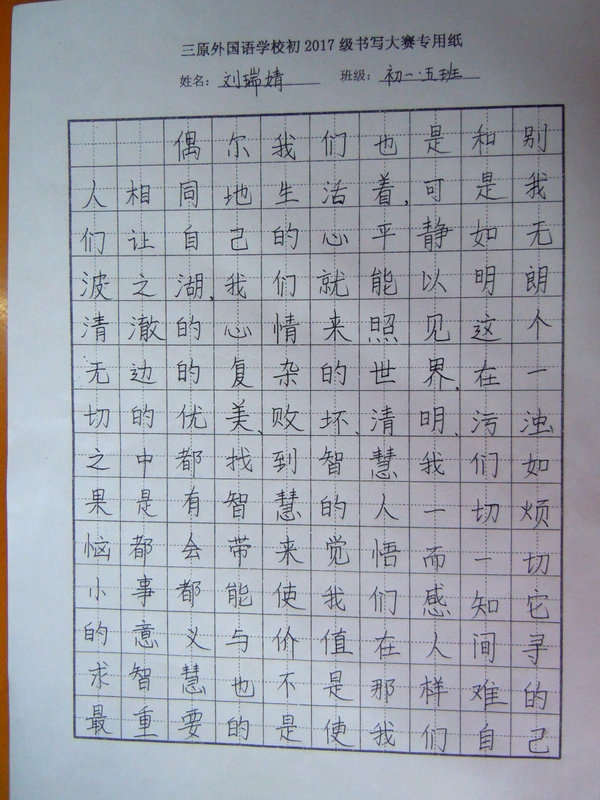 三原外国语学校初2017级书写大赛专用纸
姓名：刘瑞婧 班级：初一.五班
偶尔我们也是和别
人相同地生活着,可是我
们让自己的心平静如无
波之湖,我们就能以明朗
清澈的心情来照见这个
无边的复杂的世界,在一
切的优美、败坏、清明、污浊
之中都找到智慧我们如
果是有智慧的人一切烦
恼都会带来觉悟而一切
小事都能使我们感知它
的意义与价值在人间寻
求智慧也不是那样难的
最重要的是使我们自己